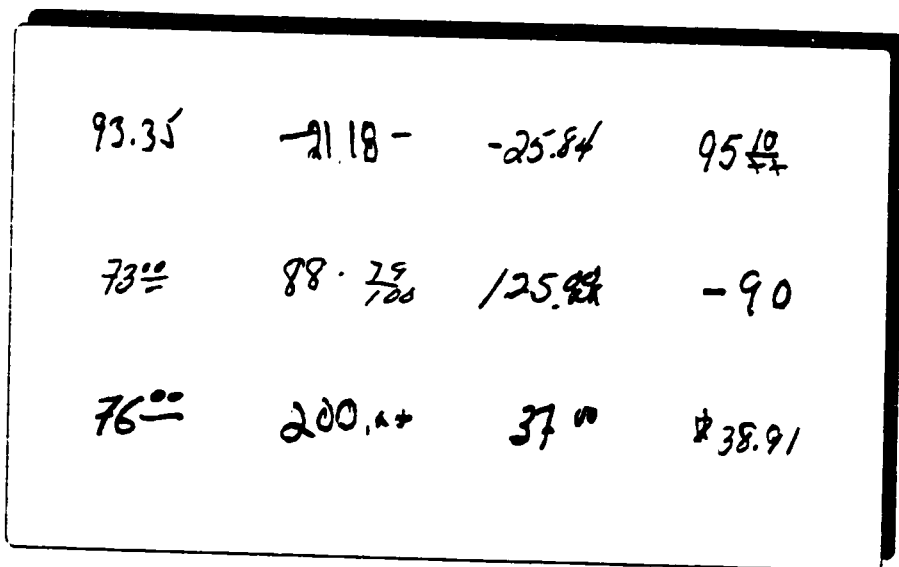 93.35 -21.18- -25.84 95 10/xx
73 00 88. 79/100 125. -90
76 00 200.xx 37 00 $38.91